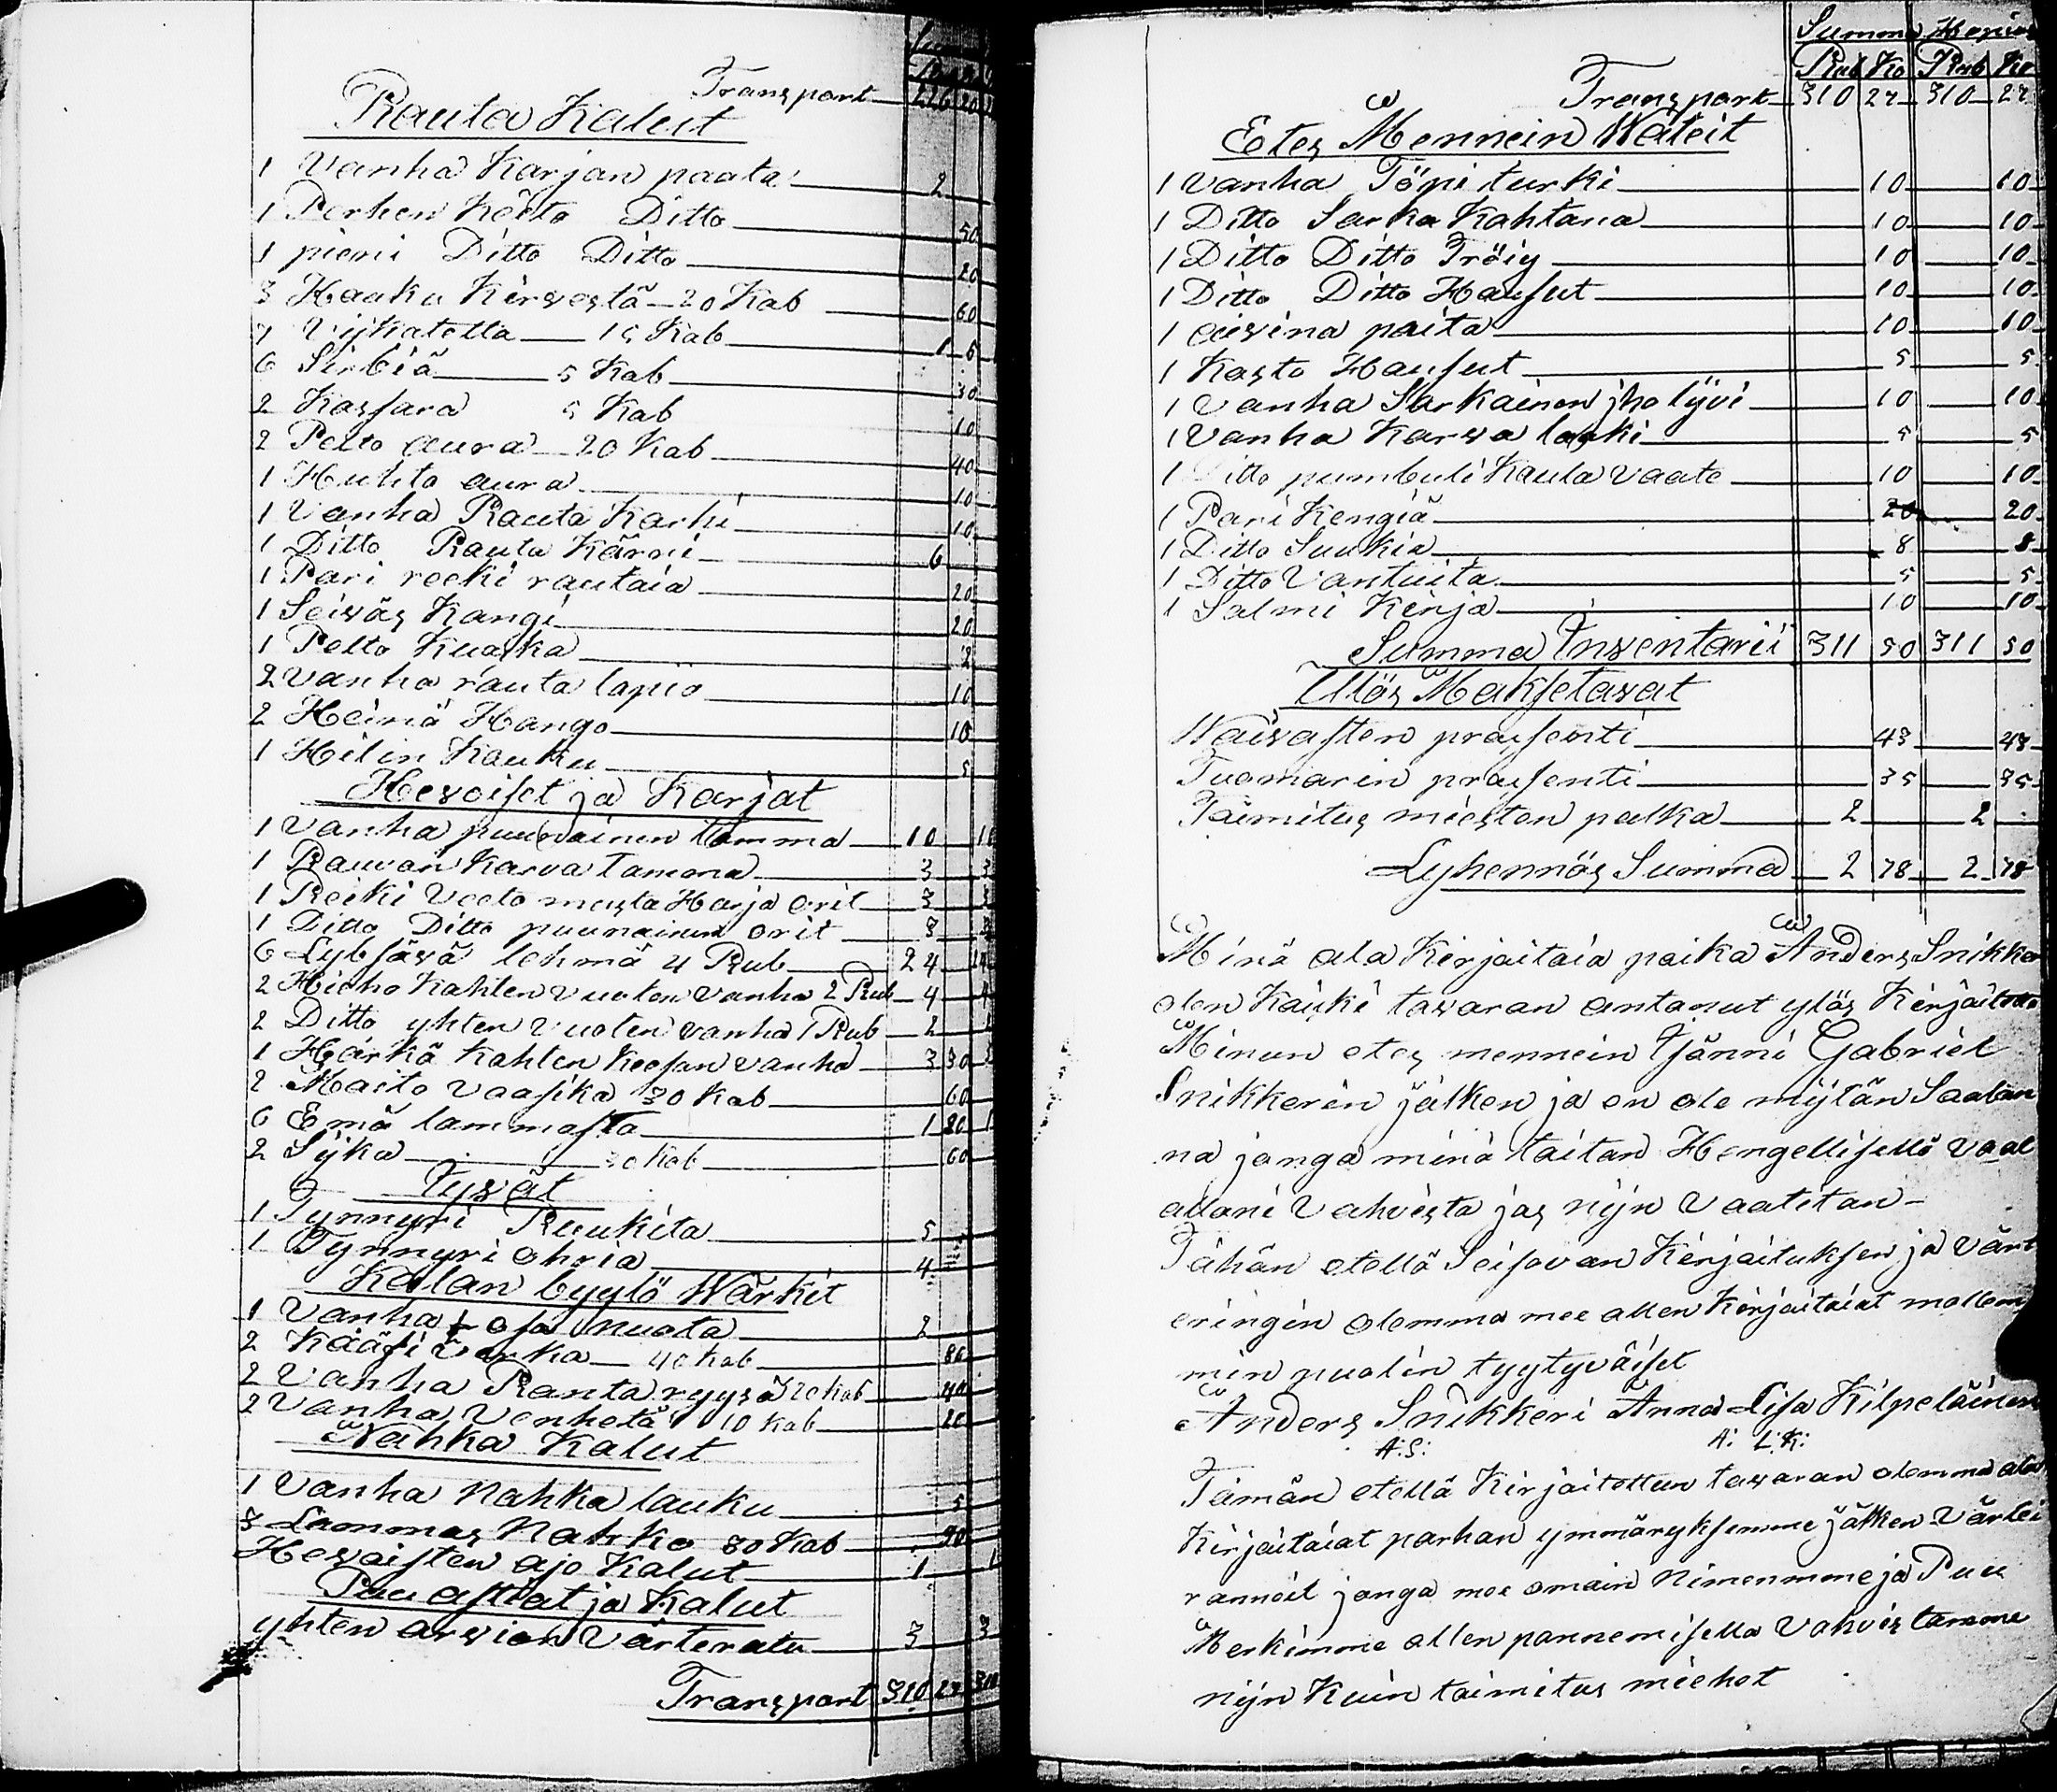 Transport 226 20
Rauta Kalut
1 Vanha Karjan paata 2
1 Perhen Keeto Ditto 50
1 pieni Ditto Ditto 20
3 Haaku Kirvestä 20 Kab 60
7 Vijkatetta 15 Kab 1 5
6 Sirbiä 5 Kab 30
2 Kassara 5 Kab 10
2 Pelto aura 20 Kab 40
1 Huhta aura 10
1 Vanha Rauta Karhi 10
1 Ditto Rauta Kärri 6
1 Pari reeki rautaia 20
1 Seiväs Kangi 20
1 Pelto Kuaska 2
2 Vanha rauta lapio 10
2 Heinä Hango 10
1 Hilin Kauku 5
Hevoiset ja Karjat
1 Vanha puunainen tamma 10 10
1 Rauvan Karva tamma 3 3
1 Reiki Veeto musta Harja orit 3 3
1 Ditto Ditto puunainen orit 3 3
6 Lybsävä lehmä 4 Rub 24 24
2 Hieho Kahten Vuoten Vanha 2 Rub 4 4
2 Ditto yhten Vuoten vanha 1 Rub 2
1 Härkä Kahten Keesan vanha 3 30
2 Maito Vaasika 30 Kab 60
6 Emä lammasta 1 80 1
2 Sijka 30 Kab 60
Jyvät
1 Tynnyri Ruukita 5
1 Tynnyri ohria 4
Kalan byytö Wärkit
1 Vanha osa nuota 2
2 Kääsi Verka 40 Kab 80
2 Vanha Ranta ryysä 20 Kab 40
2 Vanha Venhetä 10 Kab 20
Nahka Kalut
1 Vanha Nahka lauku 5
3 Lammas Nahka 30 Kab 90
Hevoisten ajo Kalut 1 1
Puu astiat ja Kalut
yhten arvion Värteratu 3 3
Transport 310 27 310
Summa Kopias
Rub Ko Rub Ko
Transport 310 27 310 27
Etes Mennein Wateit
1 Vanha Töpi turki 10 10
1 Ditto Sarka Kahtana 10 10
1 Ditto Ditto Tröig 10 10
1 Ditto Ditto Hausut 10 10
1 aivina paita 10 10
1 Kasto Hausut 5 5
1 Vanha Sarkainen jholijvi 10 10
1 Vanha Karva laki 5 5
1 Ditto pumbuli Kaula Vaate 10 10
1 Pari Kengiä 20 20
1 Ditto Sukia 8 8
1 Ditto Vantuita 5 5
1 Salmi Kirja 10 10
Summa Inventarii 311 50 311 50
Ulös Maksetavat
Waivasten prausenti 43 43
Tuomarin prausenti 35 35
Täimitus miesten palka 2 2
Lyhennös Summa 2 78 2 78
Minä ala Kirjaitaia paika Anders Snikker
olen Kaiki tavaran antanut ylös Kirjaitetta
Minun etes mennein Isänni Gabriel
Snikkerin jälken ja en ole mijtän Saalan
na janga minä taitan Hengellisellä Vaal
allani Vahvista jas nijn Vaatitan
Tähän etellä Seisovan Kirjaituksen ja Värt
eringin olemma mee allen Kirjaitaiat mollem
min puolin tyytyväiset
Anders Snikkeri Anna Lisa Kilpeläinen
A: S: A: L: K:
Tämän etellä Kirjaitettun tavaran olemma ala
Kirjaitaiat parhan ymmäryksemme jälken Värtei
ranneit janga mee omain Nimenmme ja Puu
Merkimme allen pannemisella Vahvistamme
nijn Kuin taimitus miehet